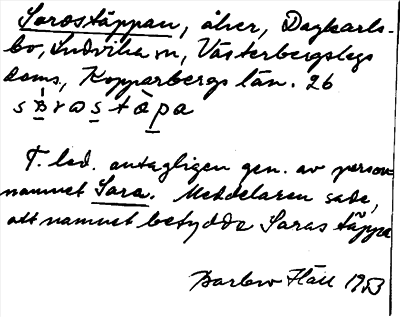 Sarastäppan, åker, Dagkarls-
bo, Ludvika sn, Västerbergslags
doms., Kopparbergs län. 26
sàrastäpa
F. led. antagligen gen. av person-
namnet Sara. Meddelaren sade,
att namnet betydde Saras täppa
Häll 1953